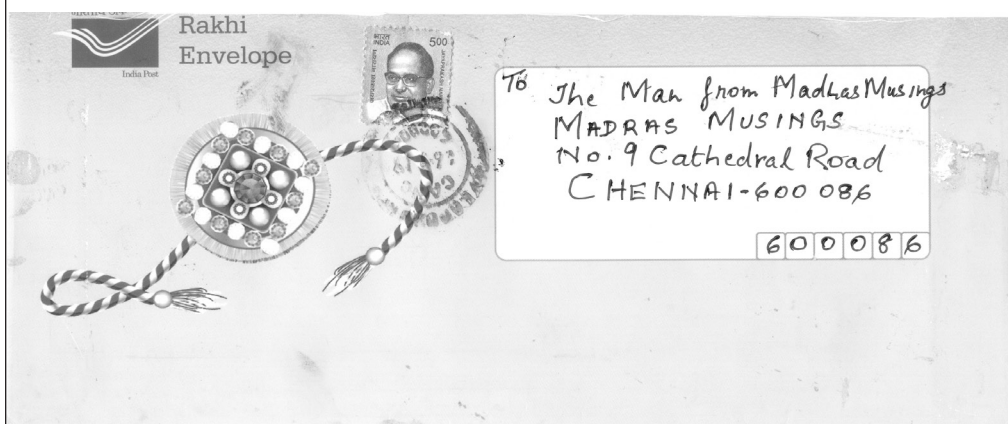 Rakhi
Envelope
India Post
भारत
INDIA
500
To
The Man from Madras Musings
MADRAS MUSINGS
No. 9 Cathedral Road
CHENNAI-600 086
600086